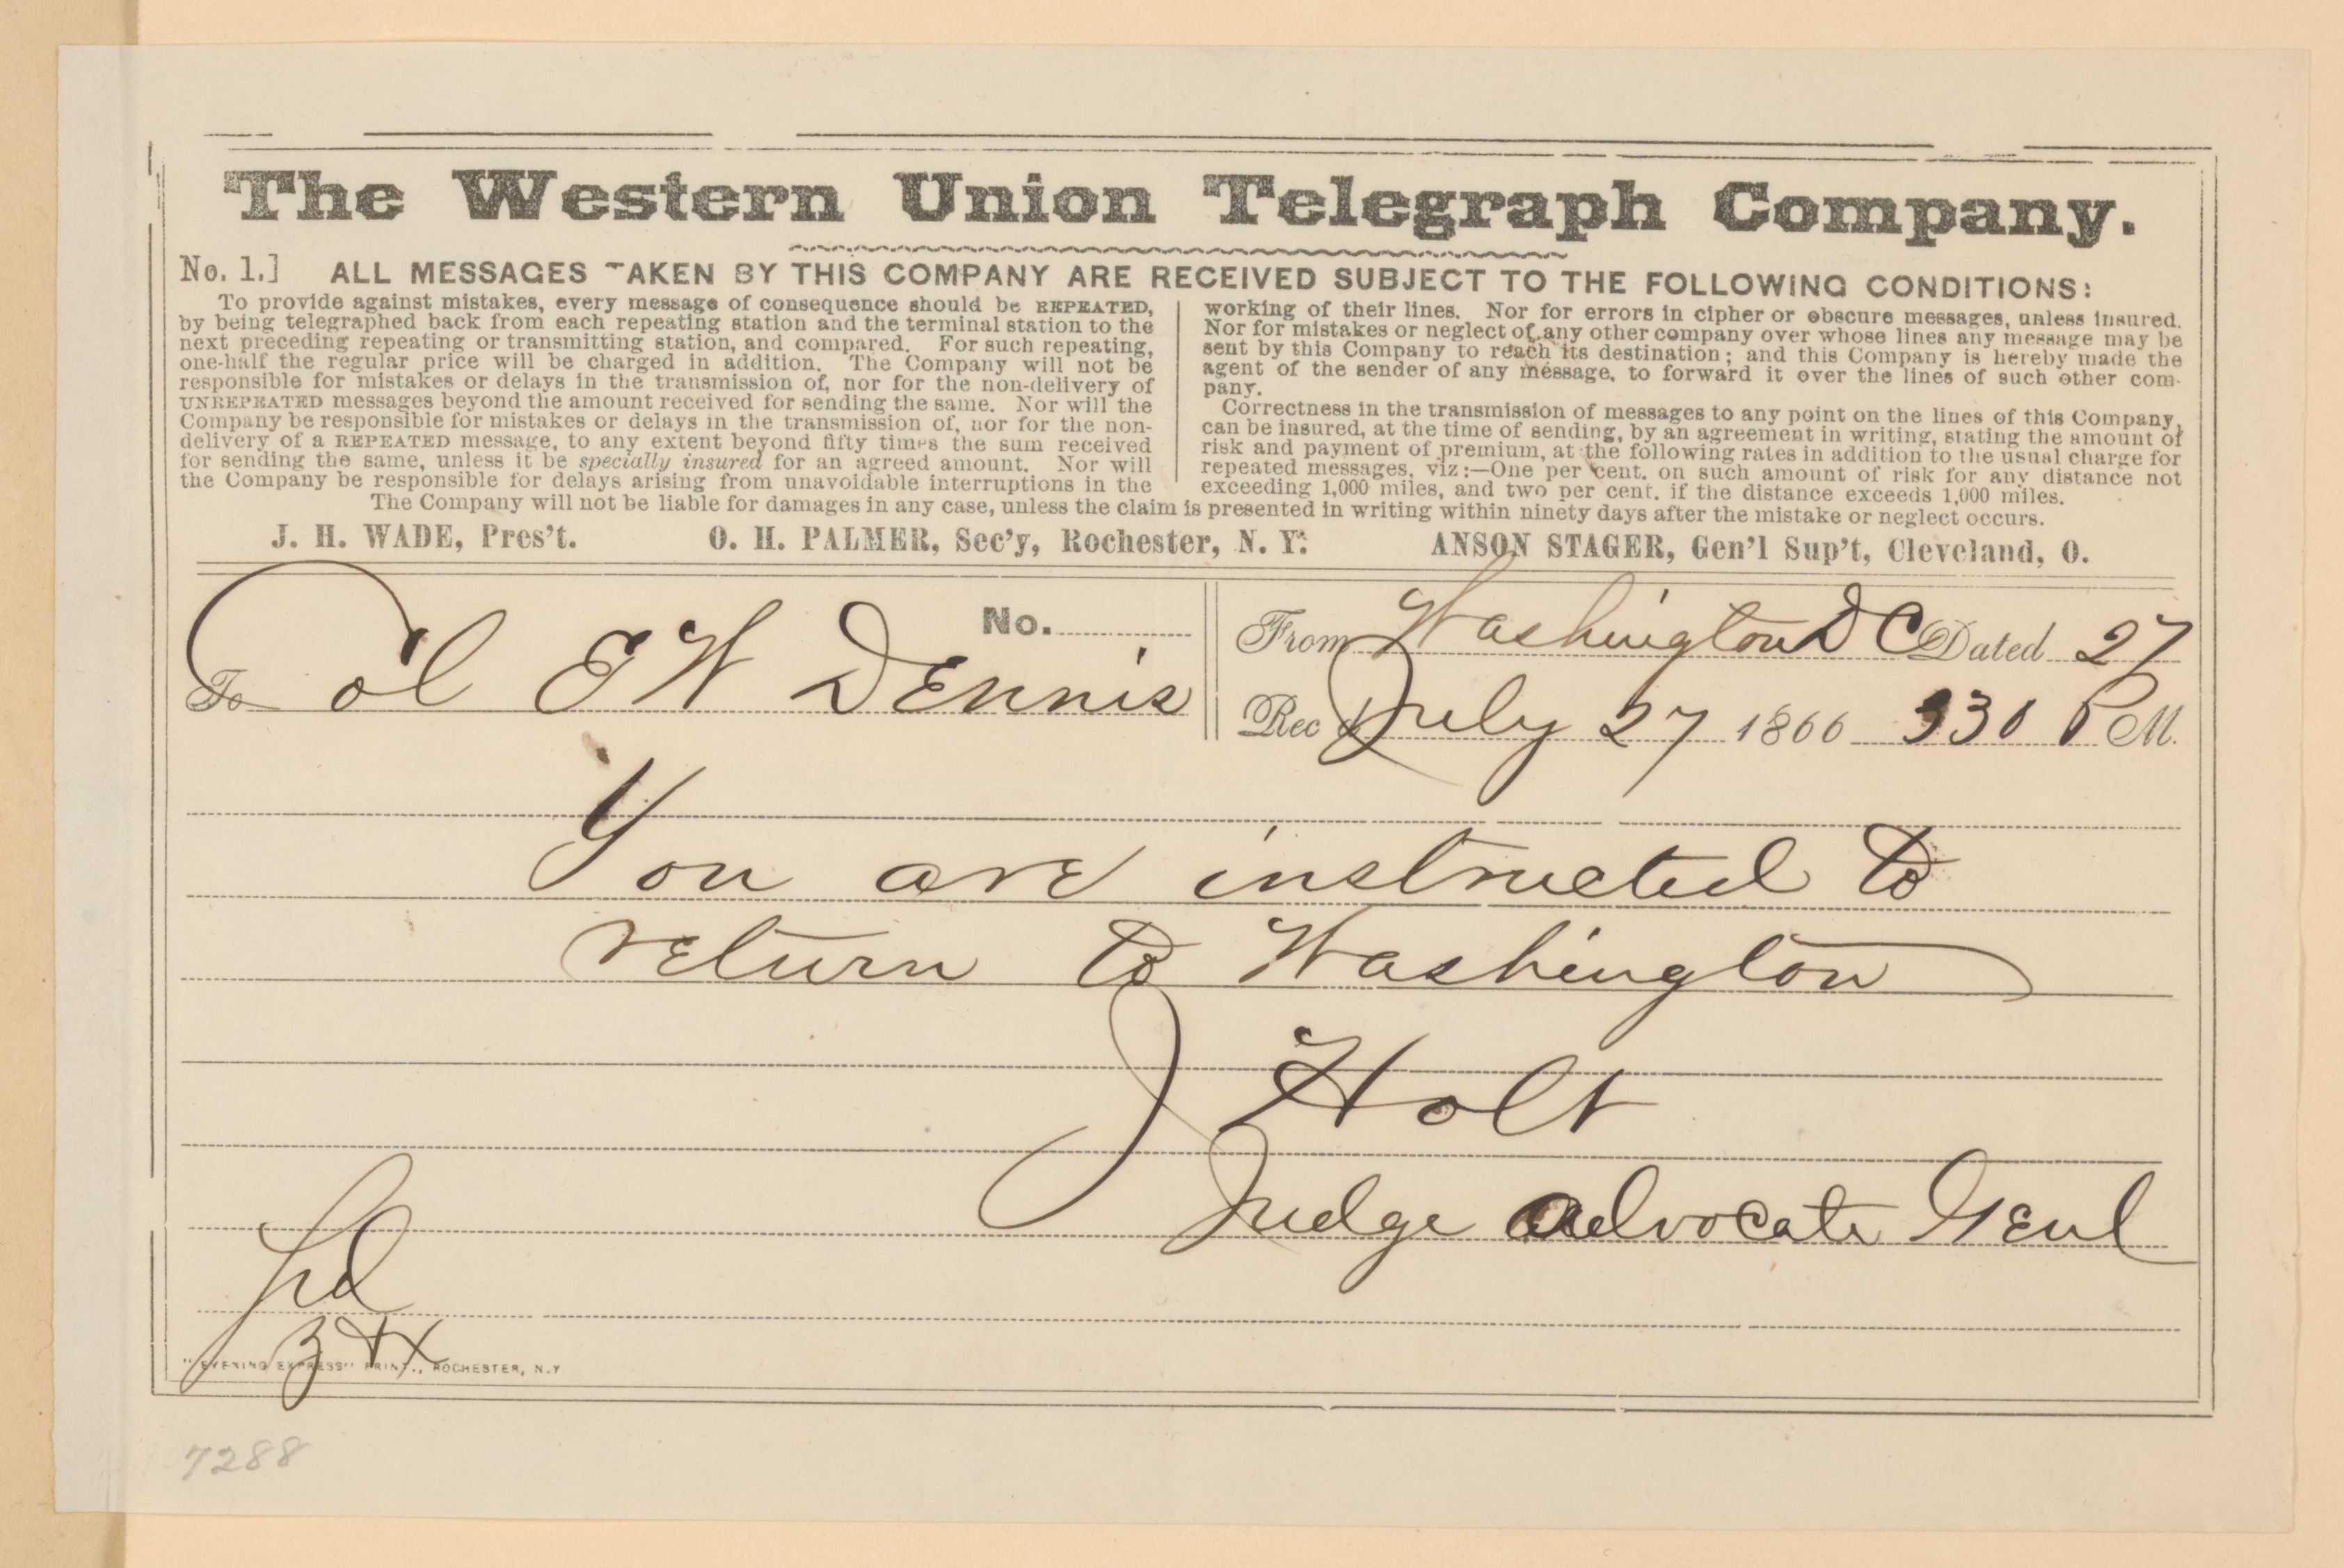 The Western Union Telegraph Company.
No. 1.] ALL MESSAGES TAKEN BY THIS COMPANY ARE RECEIVED SUBJECT TO THE FOLLOWING CONDITIONS:
To provide against mistakes, every message of consequence should be REPEATED,
by being telegraphed back from each repeating station and the terminal station to the
next preceding repeating or transmitting station, and compared. For such repeating,
one-half the regular price will be charged in addition. The Company will not be
responsible for mistakes or delays in the transmission of, nor for the non-delivery of
UNREPEATED messages beyond the amount received for sending the same. Nor will the
Company be responsible for mistakes or delays in the transmission of, nor for the non-
delivery of a REPEATED message, to any extent beyond fifty times the sum received
for sending the same, unless it be specially insured for an agreed amount. Nor will
the Company be responsible for delays arising from unavoidable interruptions in the
working of their lines. Nor for errors in cipher or obscure messages, unless insured.
Nor for mistakes or neglect of any other company over whose lines any message may be
sent by this Company to reach its destination; and this Company is hereby made the
agent of the sender of any message, to forward it over the lines of such other com-
pany.
Correctness in the transmission of messages to any point on the lines of this Company,
can be insured, at the time of sending, by an agreement in writing, stating the amount of
risk and payment of premium, at the following rates in addition to the usual charge for
repeated messages, viz:—One per cent. on such amount of risk for any distance not
exceeding 1,000 miles, and two per cent. if the distance exceeds 1,000 miles.
The Company will not be liable for damages in any case, unless the claim is presented in writing within ninety days after the mistake or neglect occurs.
J. H. WADE, Pres't. O. H. PALMER, Sec'y, Rochester, N. Y. ANSON STAGER, Gen'l Sup't, Cleveland, O.
No.
To Col E W Dennis
From Washington D C Dated 27
Rec d July 27 1866 330 P M.
You are instructed to
return to Washington
J Holt
Judge advocate Genl
"EVENING EXPRESS" PRINT., ROCHESTER, N.Y
7288